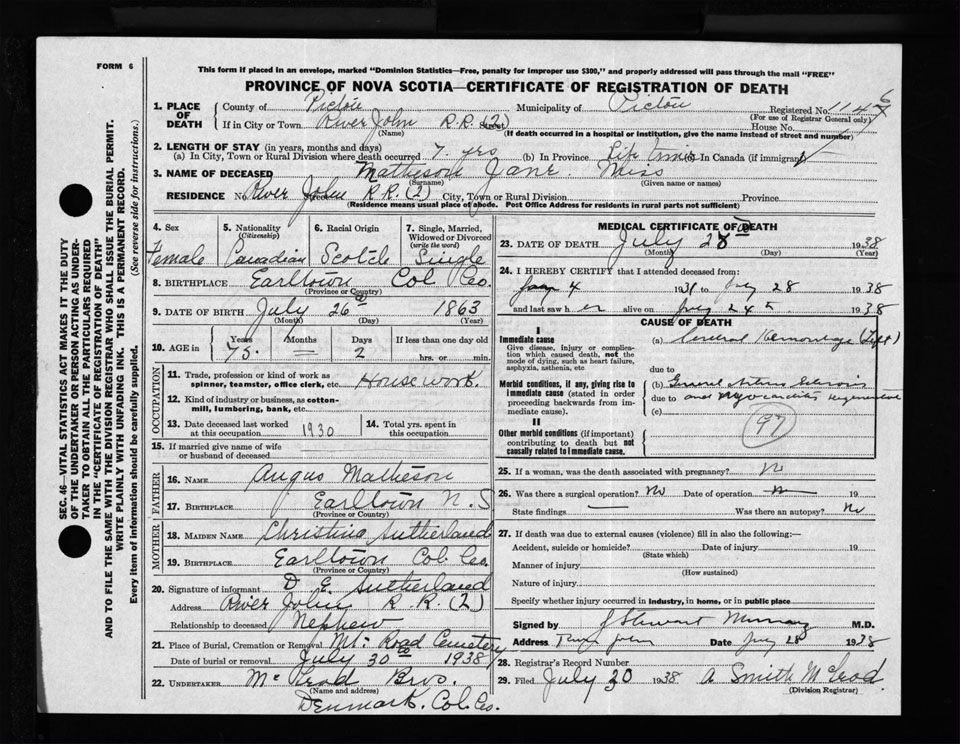 FORM 6
This form if placed in an envelope, marked "Dominion Statistics—Free, penalty for improper use $300," and properly addressed will pass through the mail "FREE"
PROVINCE OF NOVA SCOTIA—CERTIFICATE OF REGISTRATION OF DEATH
1. PLACE OF DEATH
County of Pictou Municipality of Pictou Registered No.
(For use of Registrar General only)
If in City or Town River John R.R. (2) Street House No.
(Name) (If death occurred in a hospital or institution, give the name instead of street and number)
2. LENGTH OF STAY (in years, months and days)
(a) In City, Town or Rural Division where death occurred 7 yrs (b) In Province Life time (c) In Canada (if immigrant)
3. NAME OF DECEASED Matheson Jane Miss
(Surname) (Given name or names)
RESIDENCE No. River John R.R. (2) City, Town or Rural Division Province
(Residence means usual place of abode. Post Office Address for residents in rural parts not sufficient)
4. Sex 5. Nationality (Citizenship) 6. Racial Origin 7. Single, Married, Widowed or Divorced (write the word)
Female Canadian Scotch Single
8. BIRTHPLACE Earltown Col Co.
(Province or Country)
9. DATE OF BIRTH July 26 1863
(Month) (Day) (Year)
10. AGE in Years Months Days If less than one day old
75 — 2 hrs. or min.
OCCUPATION
11. Trade, profession or kind of work as spinner, teamster, office clerk, etc. House work.
12. Kind of industry or business, as cotton-mill, lumbering, bank, etc.
13. Date deceased last worked at this occupation 1930 14. Total yrs. spent in this occupation
15. If married give name of wife or husband of deceased
FATHER
16. NAME Angus Matheson
17. BIRTHPLACE Earltown N.S
(Province or Country)
MOTHER
18. MAIDEN NAME Christina Sutherland
19. BIRTHPLACE Earltown Col Co.
(Province or Country)
20. Signature of informant D. E. Sutherland
Address River John R.R. (2)
Relationship to deceased Nephew
21. Place of Burial, Cremation or Removal Mt. Road Cemetery
Date of burial or removal July 30 1938
22. UNDERTAKER McLeod Bros.
(Name and address)
Denmark. Col. Co.
MEDICAL CERTIFICATE OF DEATH
23. DATE OF DEATH July 28 1938
(Month) (Day) (Year)
24. I HEREBY CERTIFY that I attended deceased from:
4 1931 to July 28 1938
and last saw h er alive on July 24 1938
CAUSE OF DEATH
I
Immediate cause
Give disease, injury or complication which caused death, not the mode of dying, such as heart failure, asphyxia, asthenia, etc
(a) Cerebral Hemorrhage (Left)
due to
Morbid conditions, if any, giving rise to immediate cause (stated in order proceeding backwards from immediate cause).
(b) General Arterio Sclerosis
due to and Myocarditis Degenerative
(c)
II
Other morbid conditions (if important) contributing to death but not causally related to immediate cause.
97
25. If a woman, was the death associated with pregnancy? No
26. Was there a surgical operation? No Date of operation 19
State findings — Was there an autopsy? No
27. If death was due to external causes (violence) fill in also the following:—
Accident, suicide or homicide? Date of injury 19
(State which)
Manner of injury
(How sustained)
Nature of injury
Specify whether injury occurred in industry, in home, or in public place
Signed by J Stewart Murray M.D.
Address River John Date July 28 1938
28. Registrar's Record Number
29. Filed July 30 1938 A Smith McLeod.
(Division Registrar)
SEC. 46—VITAL STATISTICS ACT MAKES IT THE DUTY
OF THE UNDERTAKER OR PERSON ACTING AS UNDER-
TAKER TO OBTAIN ALL THE PARTICULARS REQUIRED
IN THE "CERTIFICATE OF REGISTRATION OF DEATH"
AND TO FILE THE SAME WITH THE DIVISION REGISTRAR WHO SHALL ISSUE THE BURIAL PERMIT.
WRITE PLAINLY WITH UNFADING INK. THIS IS A PERMANENT RECORD.
Every item of information should be carefully supplied. (See reverse side for instructions.)